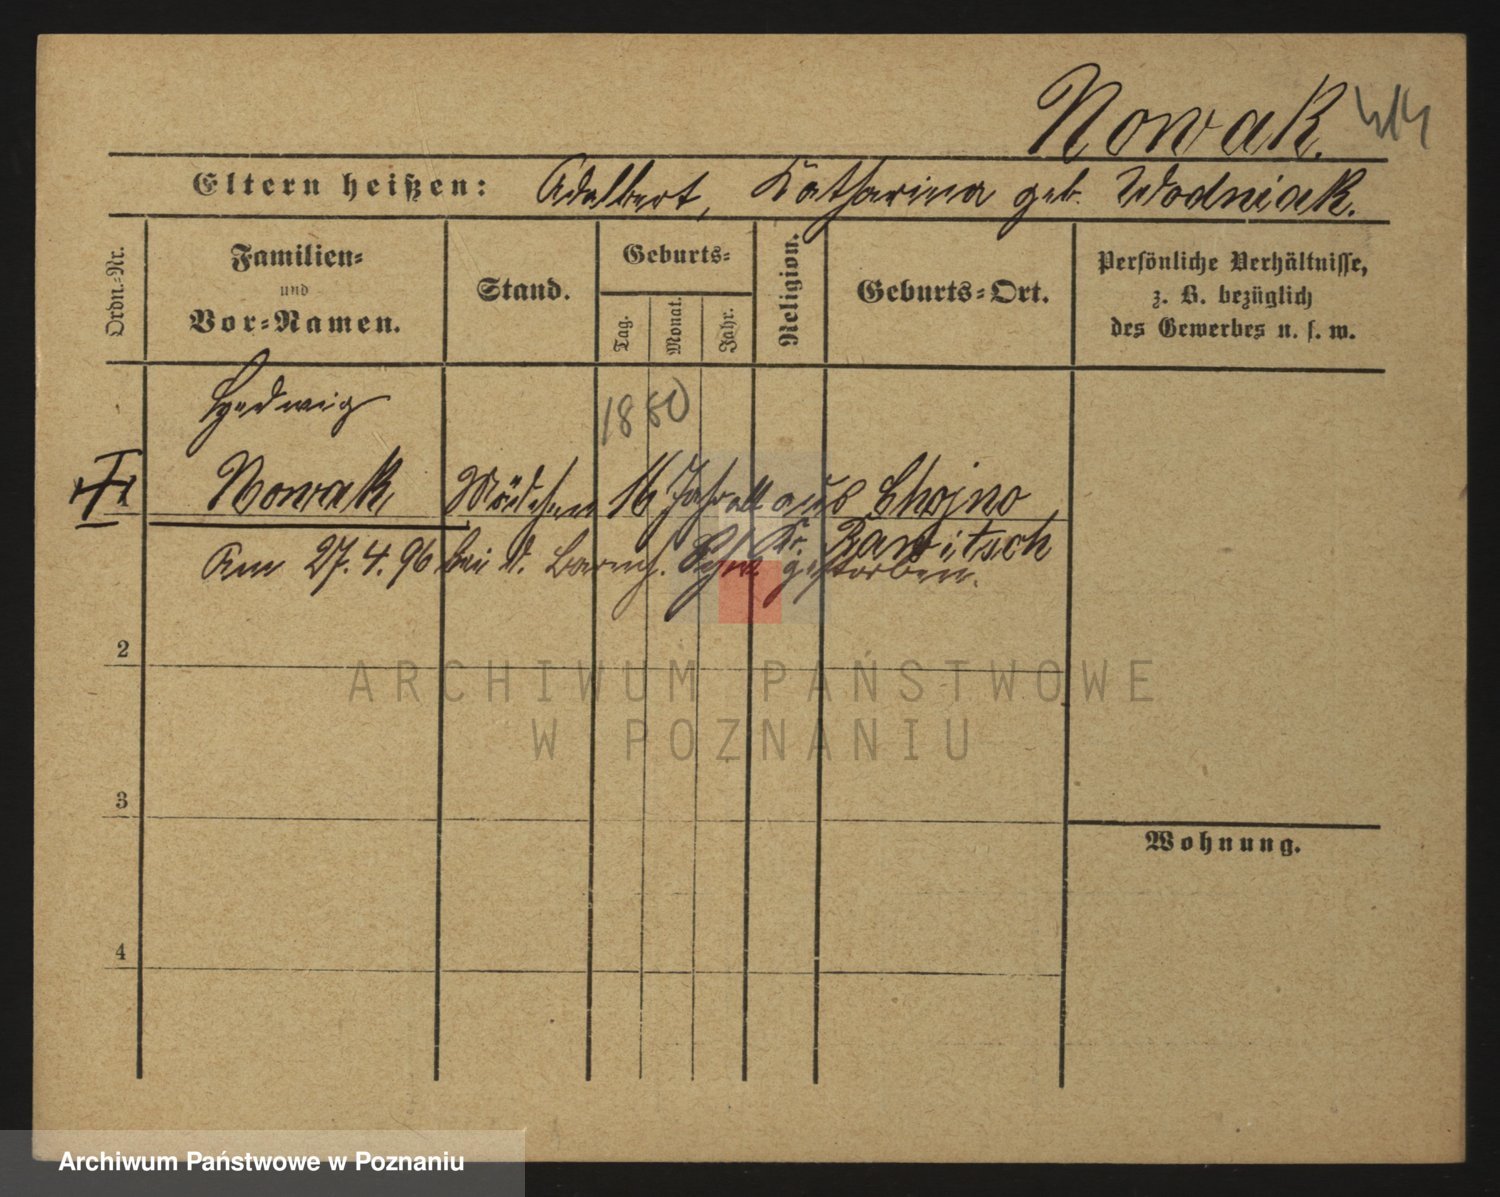 Nowak.
Eltern heißen: Adalbert, Katharina geb. Wodniak.
Ordn.-Nr.
Familien-
und
Vor-Namen.
Stand.
Geburts-
Tag.
Monat.
Jahr.
Religion.
Geburts-Ort.
Persönliche Verhältnisse,
z. B. bezüglich
des Gewerbes u. s. w.
Hedwig
1880
1 Nowak Mädchen 16 Jahr alt aus Chojno
Kr. Rawitsch
Am 27.4.96 bei d. Barmh. Schw. gestorben.
2
ARCHIWUM PAŃSTWOWE
W POZNANIU
3
Wohnung.
4
Archiwum Państwowe w Poznaniu